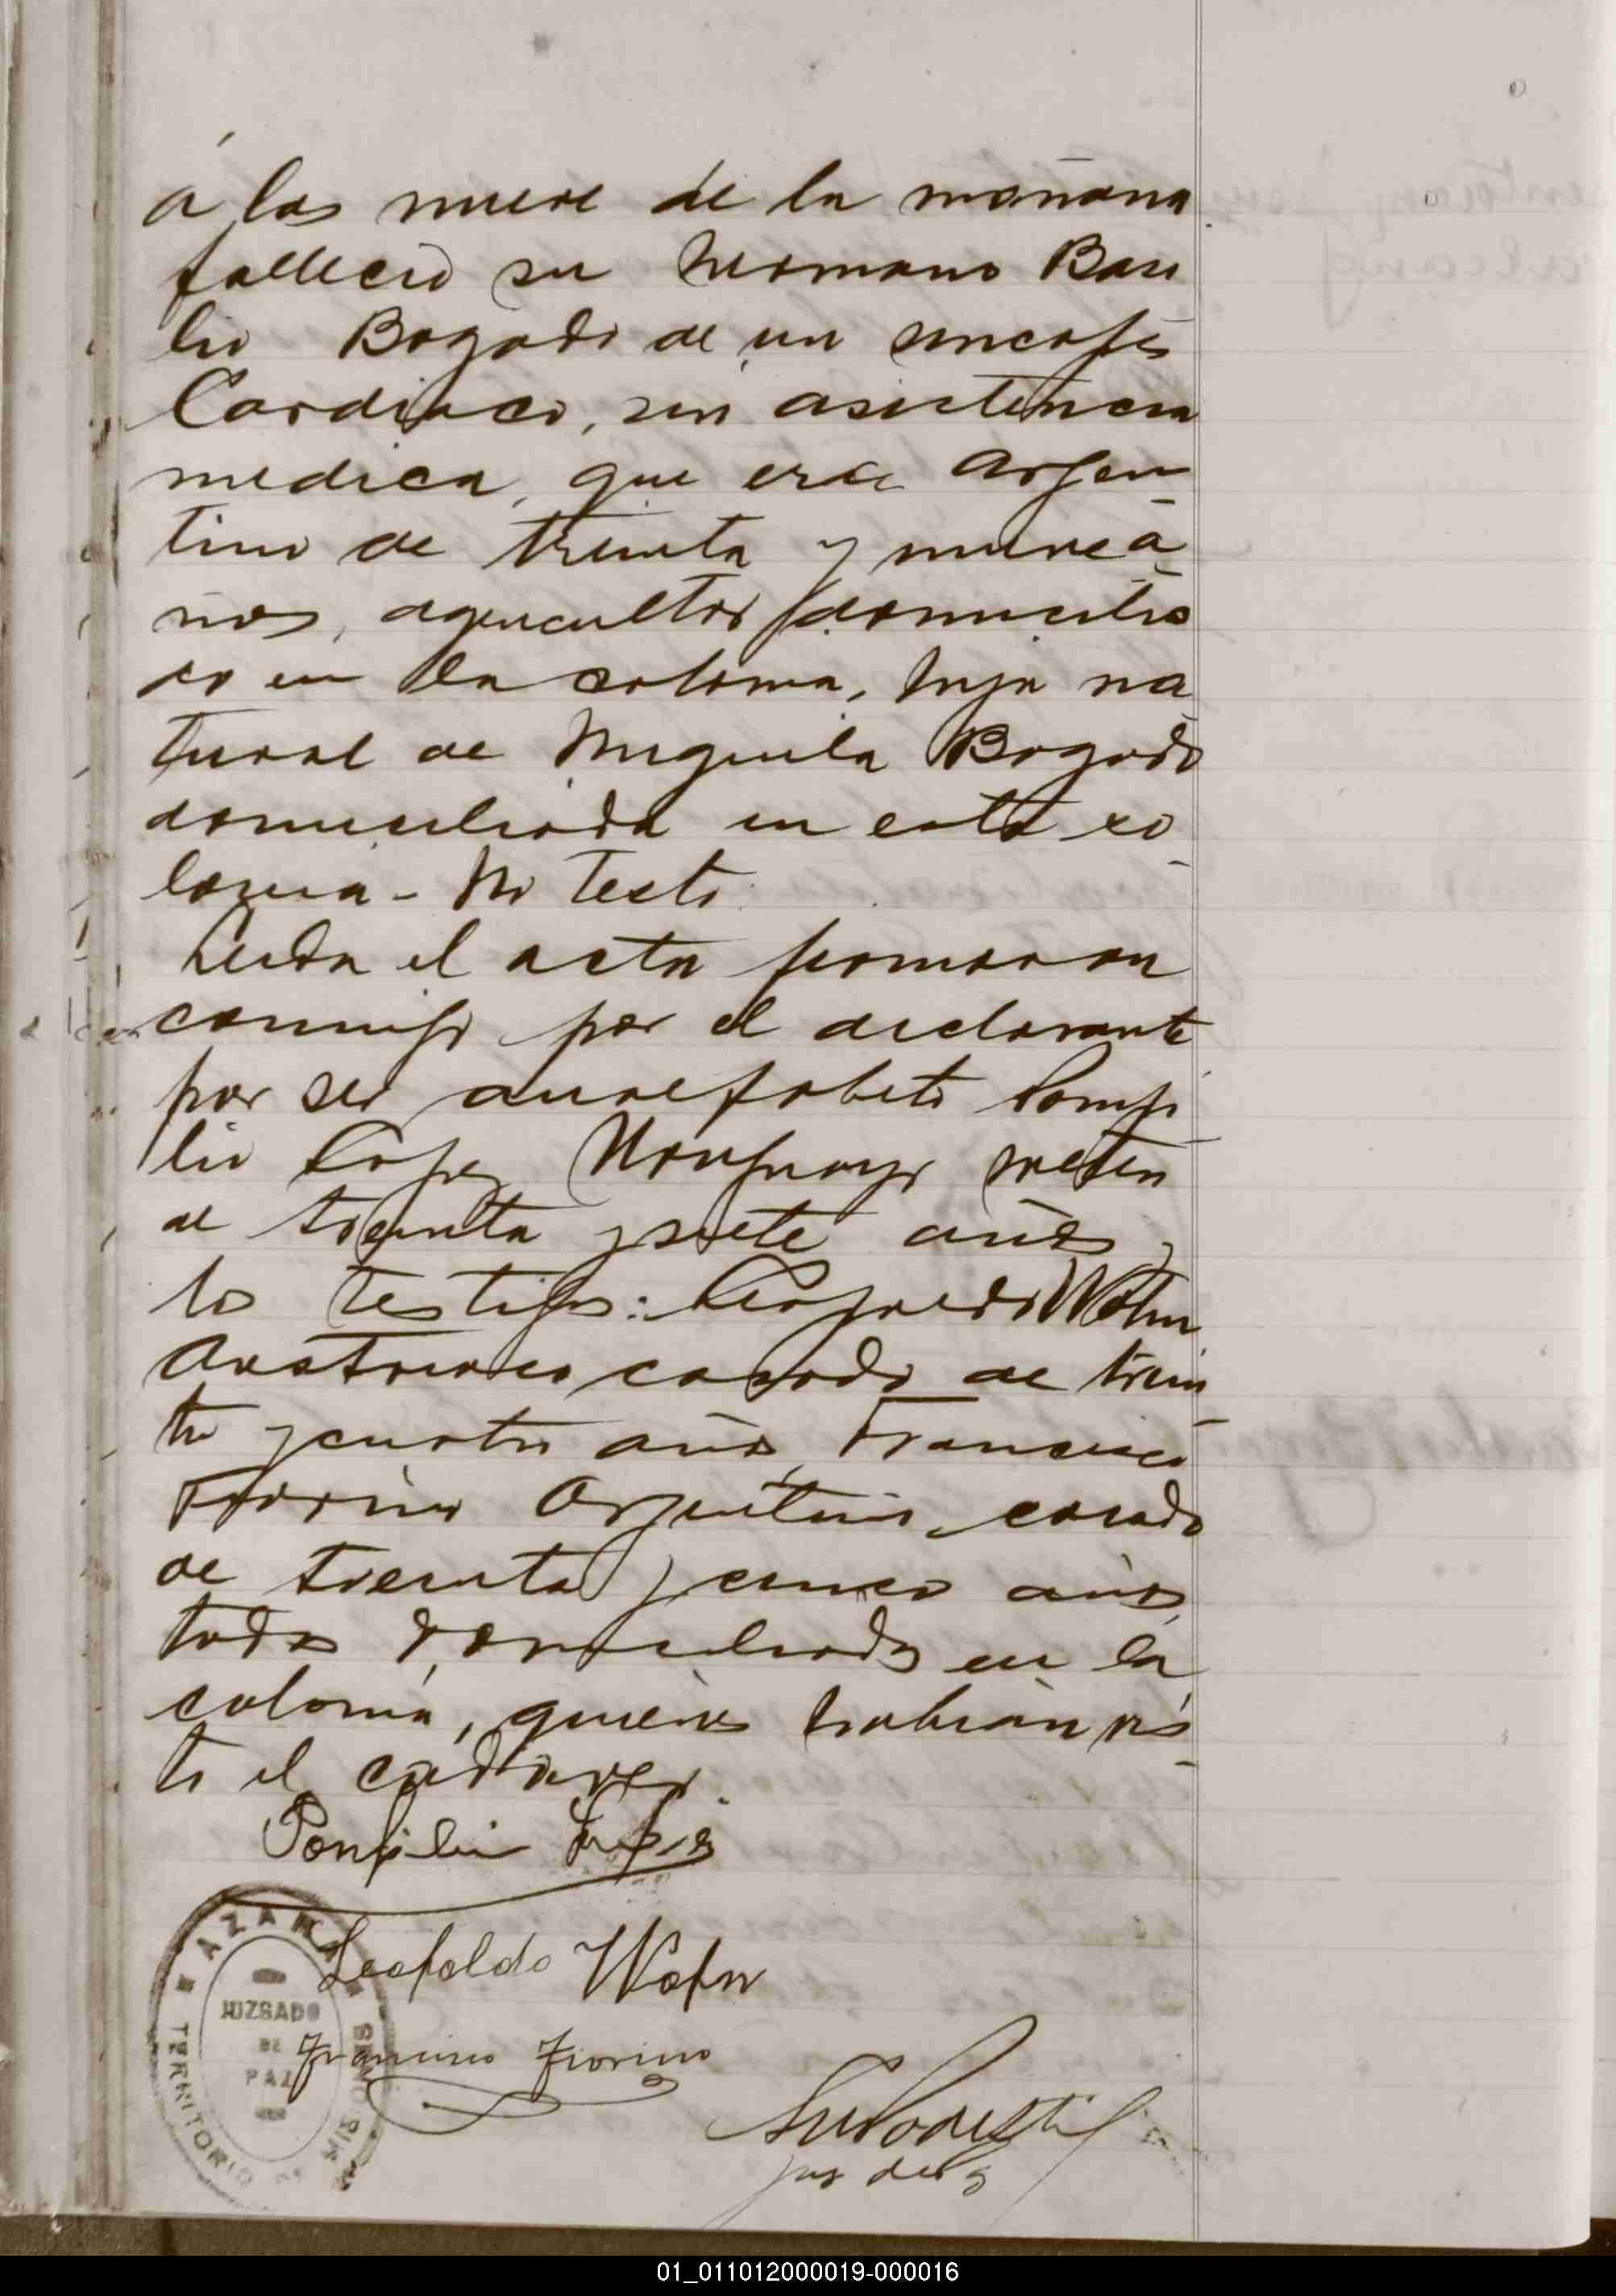 á las nueve de la mañana
falleció su hermano Basi
lio Bogado de un sincopis
Cardiaco, sin asistencia
medica, que era Argen
tino de treinta y nueve a
ños, agricultor domicilia
do en la colonia, hijo na
tural de Miguela Bogado
domiciliada en esta co
lonia - No Testó.
Leida el acta firmaron
conmigo por el declarante
por ser analfabeto Pompi
lio Lopez Uruguayo
de treinta y siete años y
los testigos: Leopoldo Wohn
Austriaco casado de trein
ta y cuatro años, Francisco
Fiorino Argentino, casado
de treinta y cinco años,
todos domiciliados en la
colonia, quienes habian vis
to el cadaver.
Pompilio Lopez
Leopoldo Wohn
Francisco Fiorino
Juez de Paz
AZARA
JUZGADO
DE
PAZ
TERRITORIO DE MISIONES
01_011012000019-000016